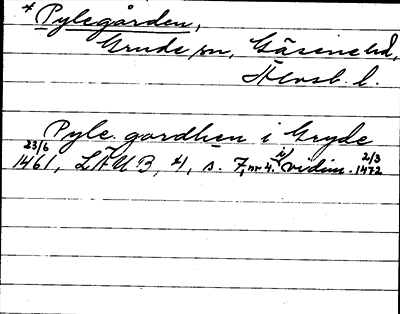 * Pylegården,
Grude sn, Gäsene hd,
Älvsb. l.
Pyle gardhen i Gryde
23/6 1461, LÄUB, 4, s. 7, nr 4. i vidim. 2/3 1472